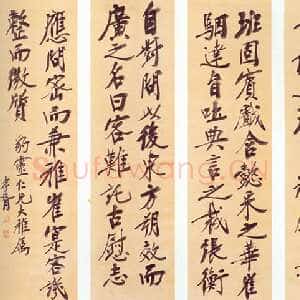 班固賓戲含懿采之華崔
駰達旨吐典言之裁張衡
自對問以後東方朔效而
廣之名曰客難託古慰志
應問密而兼雅崔寔客譏
整而微質
仁兄大雅屬